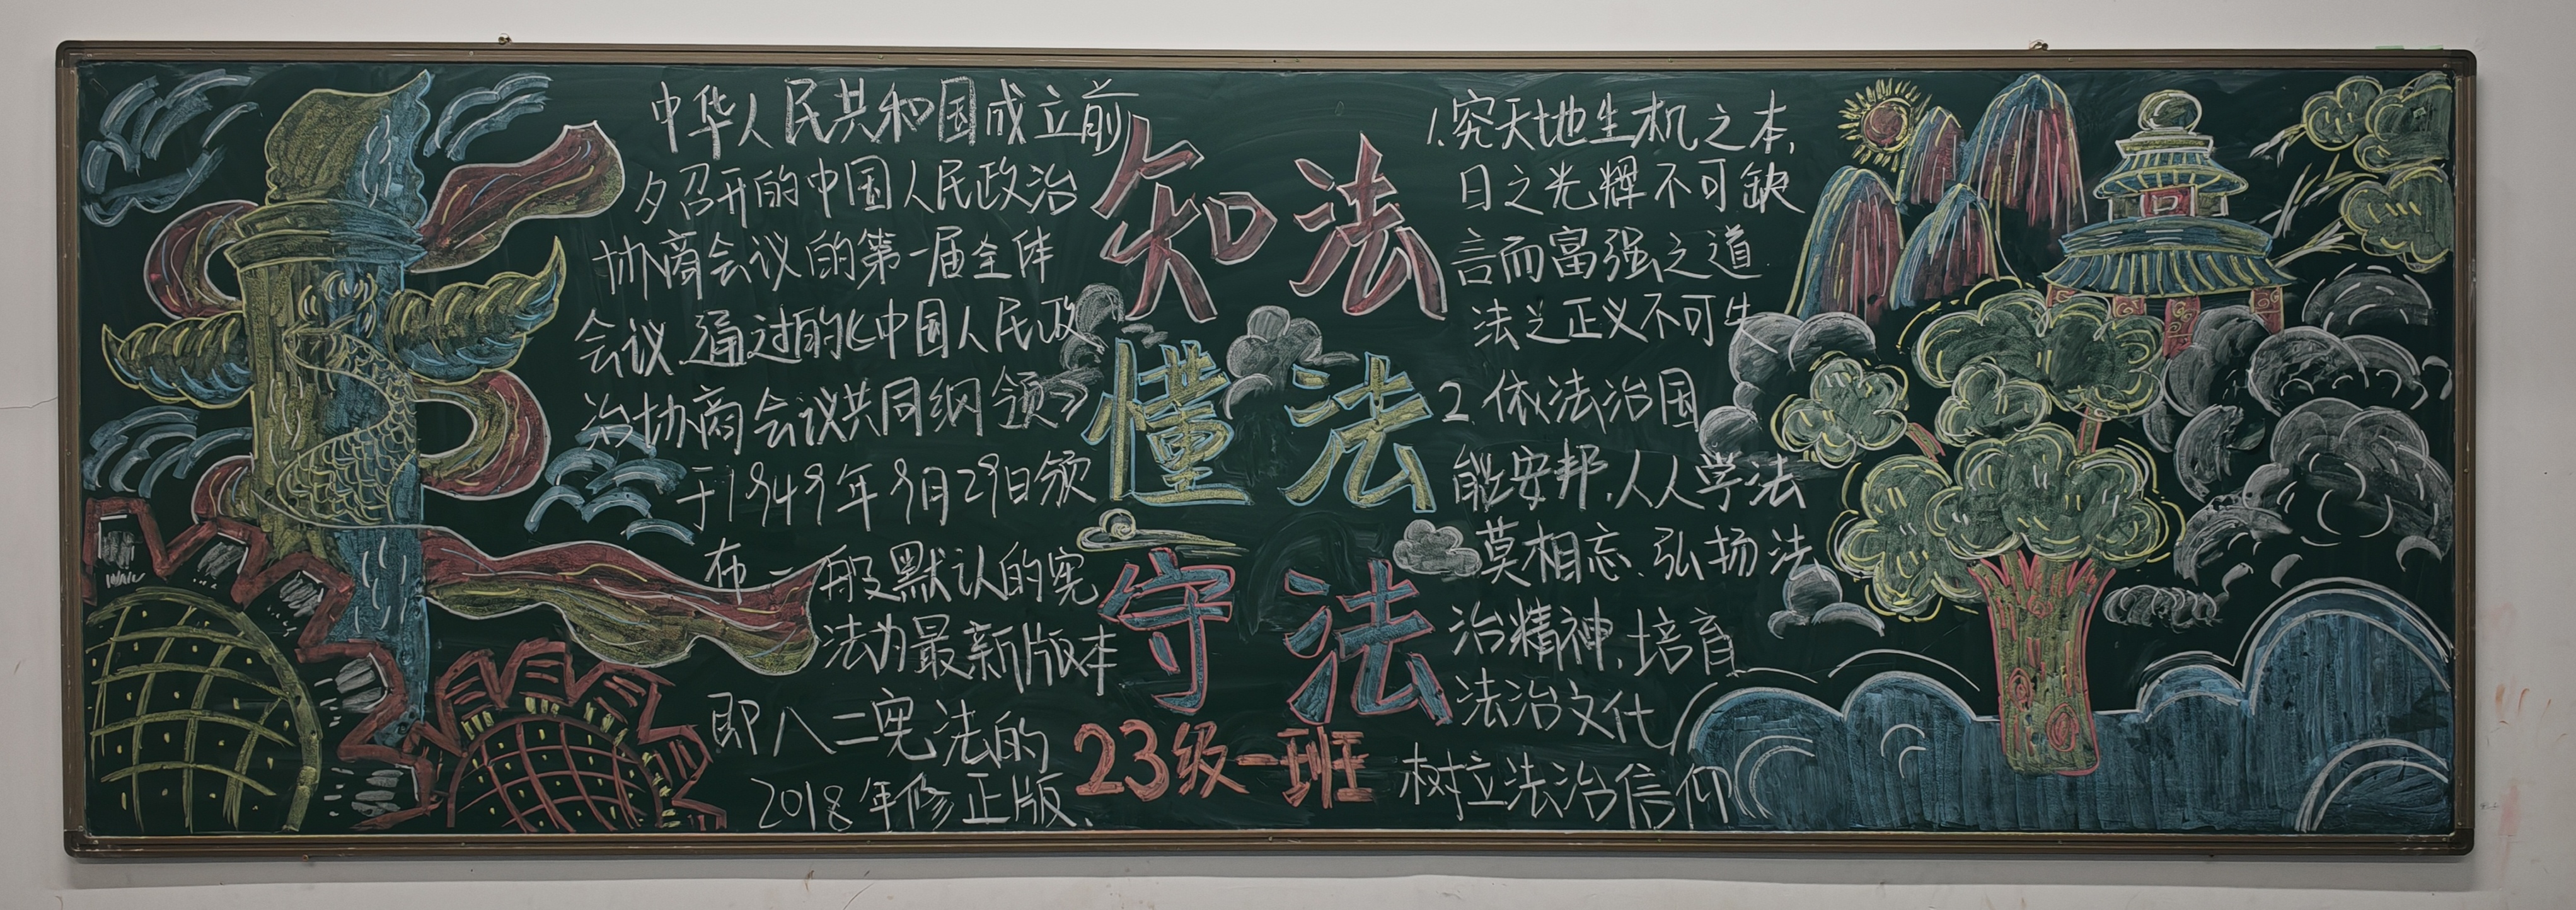 中华人民共和国成立前
夕召开的中国人民政治
协商会议的第一届全体
会议通过的《中国人民政
治协商会议共同纲领》
于1949年9月29日颁
布一般默认的宪
法为最新版本
即八二宪法的
2018年修正版、
知法
懂法
守法
23级一班
1.究天地生机之本,
日之光辉不可缺
言而富强之道
法之正义不可失
2.依法治国
能安邦,人人学法
莫相忘、弘扬法
治精神,培育
法治文化
树立法治信仰